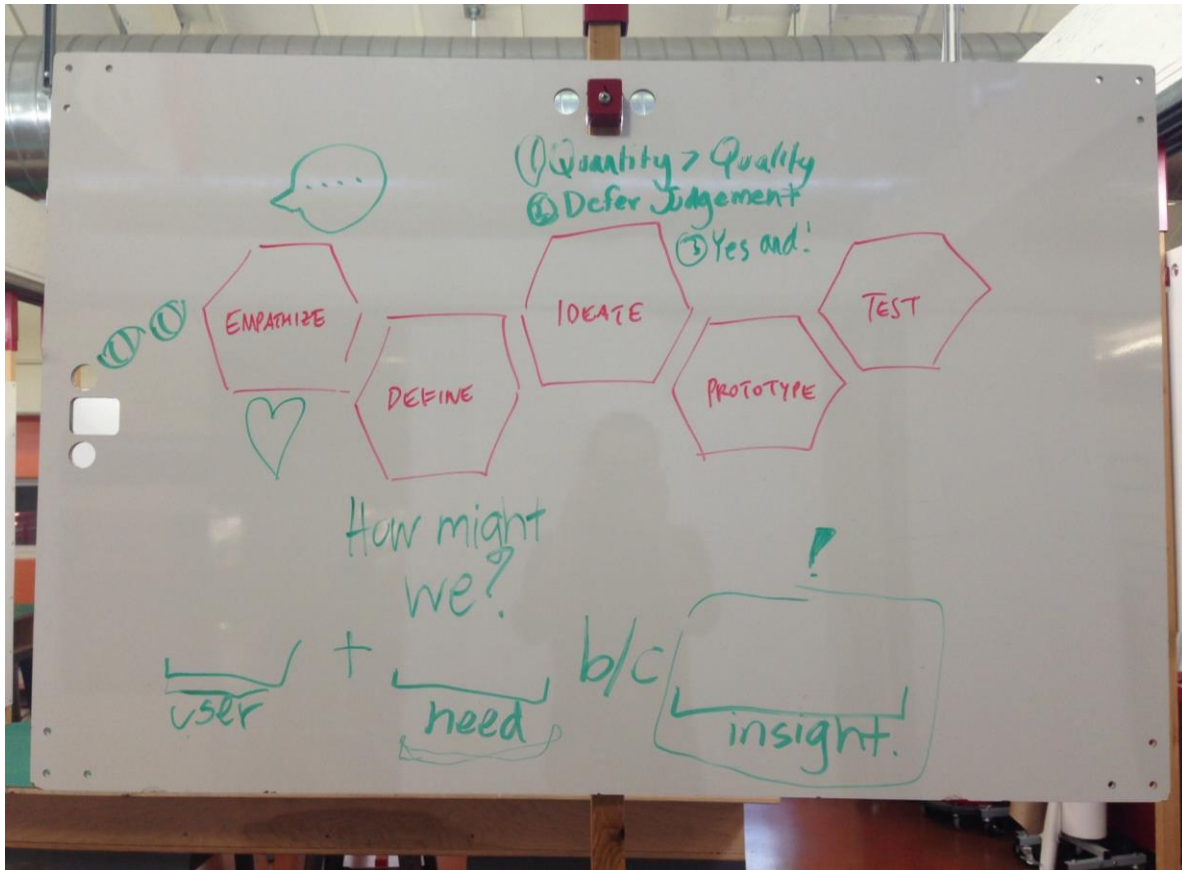 ....
① Quantity > Quality
② Defer Judgement
③ Yes and!
EMPATHIZE
DEFINE
IDEATE
PROTOTYPE
TEST
How might
we?
!
+ b/c
user need insight.